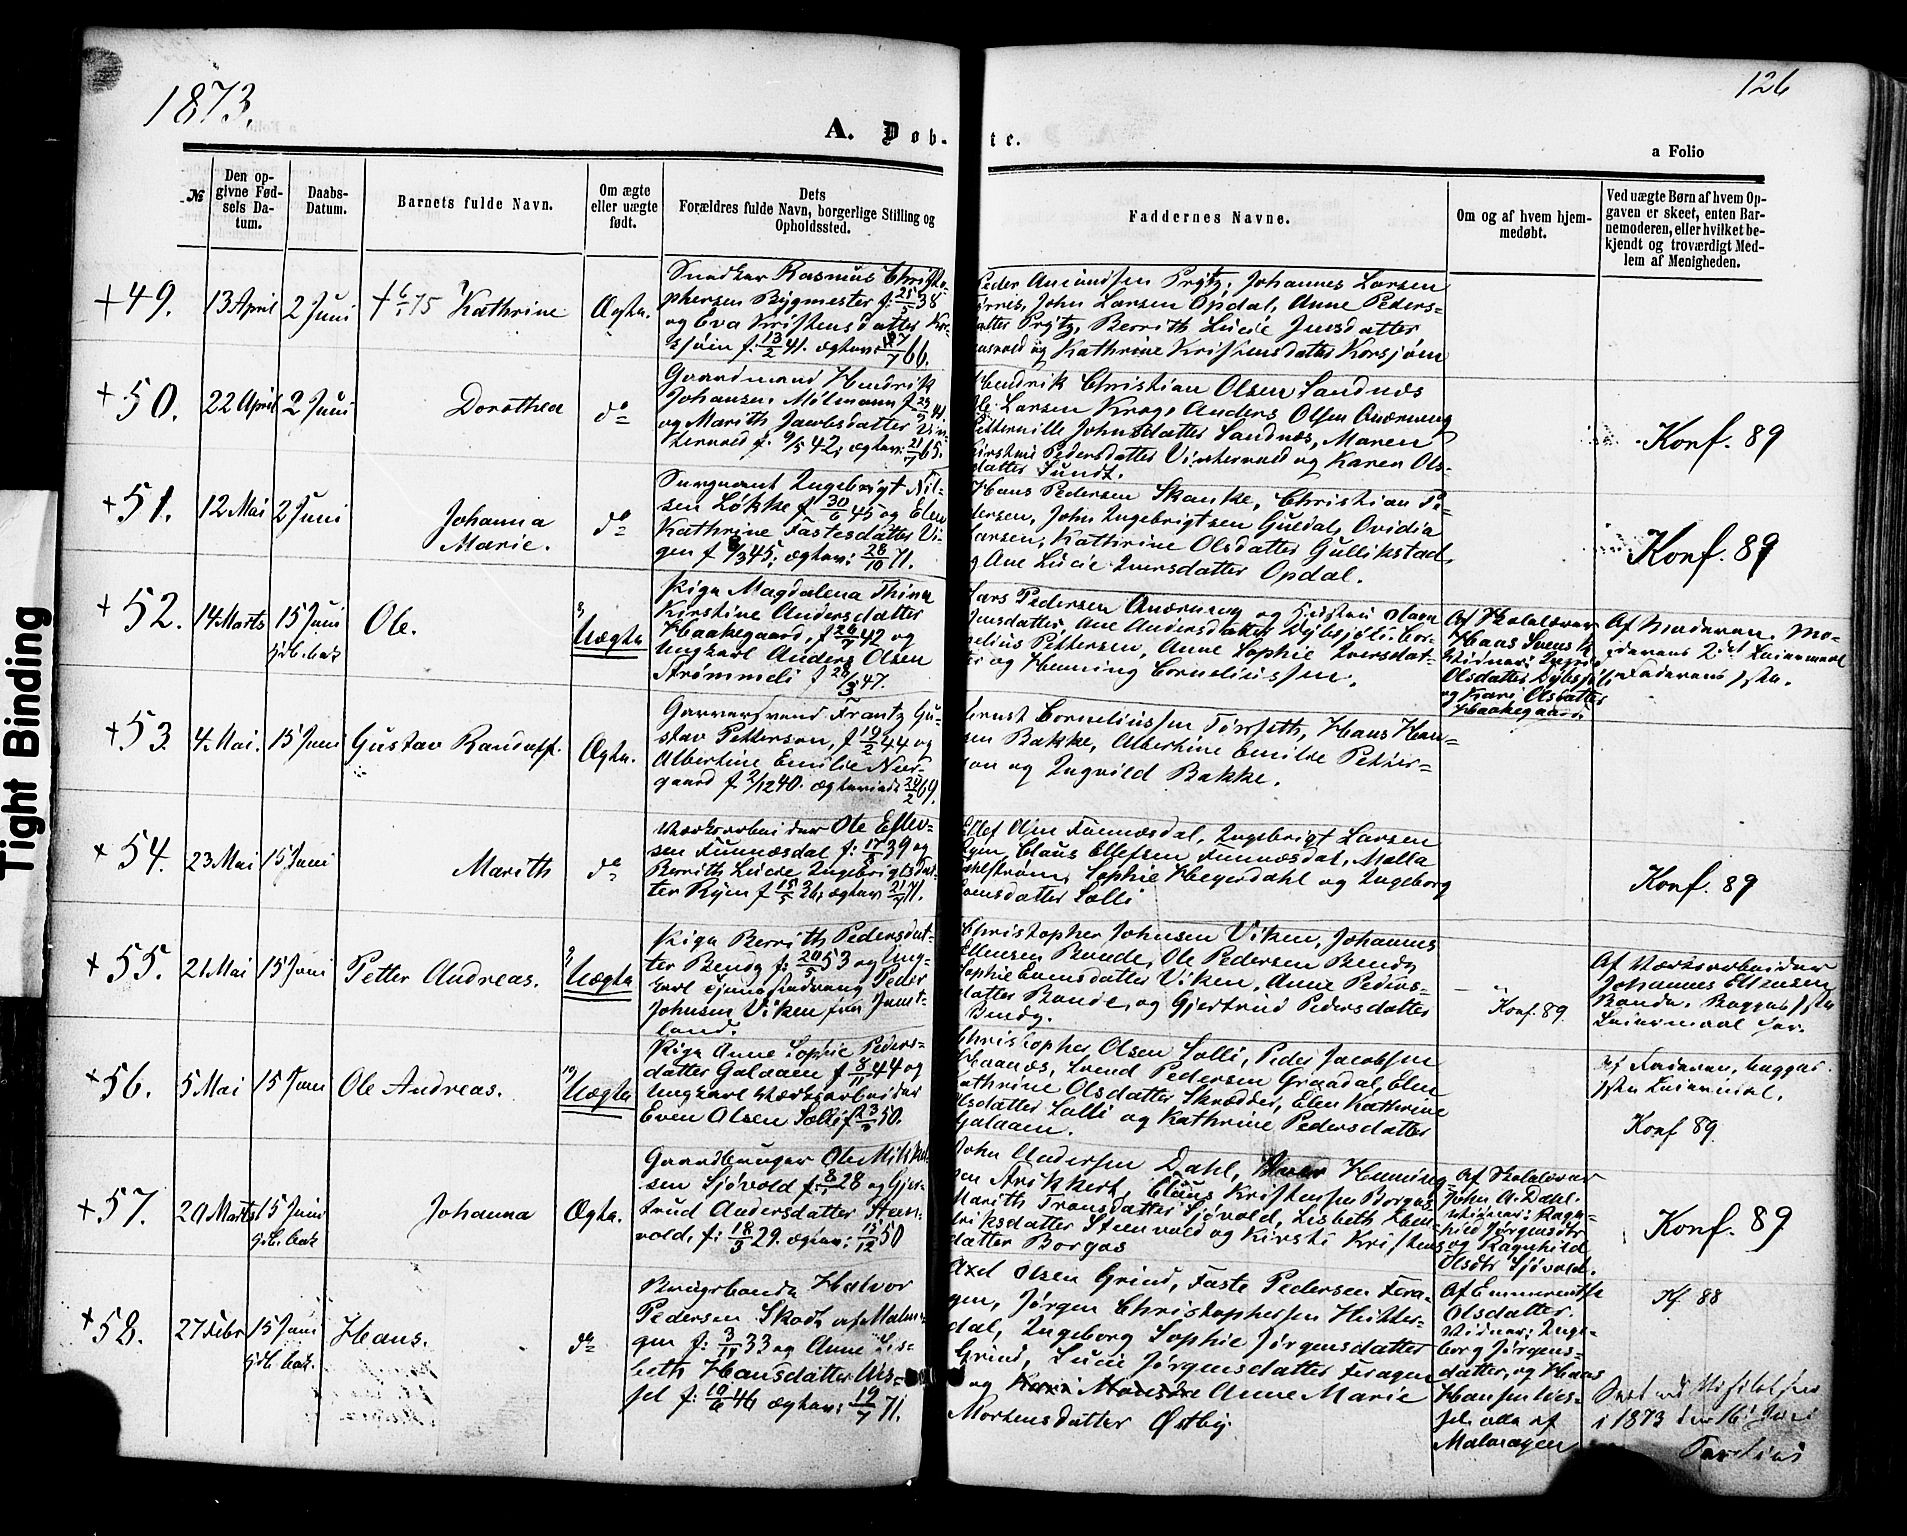 1873.
126
A. Døb-
te.
a Folio
Tight Binding
№
Den op-
givne Fød-
sels Da-
tum.
Daabs-
Datum.
Barnets fulde Navn.
Om ægte
eller uægte
født.
Dets
Forældres fulde Navn, borgerlige Stilling og
Opholdssted.
Faddernes Navne.
Om og af hvem hjem-
medøbt.
Ved uægte Børn af hvem Op-
gaven er skeet, enten Bar-
nemoderen, eller hvilket be-
kjendt og troværdigt Med-
lem af Menigheden.
+ 49. 13 April 2 Juni Kathrine Ægte.
Snedker Rasmus Christo-
phersen Bygmester f. 25/5 38
og Eva Kristensdatter Kor-
sjøien f. 13/2 41. ægtev: 66.
Peder Amundsen Prytz, Johannes Larsen
John Larsen Opdal, Anne Peders-
datter Prytz, Berrith Lucie Jensdatter
og Kathrine Kristensdatter Korsjøen
+ 50. 22 April 2 Juni Dorothea do
Gaardmand Hendrik
Johansen Mølmann f.
og Marith Jacobsdatter Vin-
tervold f. 9/5 42, ægtev: 21/7 65.
Hendrik Christian Olsen Sandnæs
Ole Larsen Krog, Anders Olsen Aunemoen
Petternille Johnsdatter Sandnæs, Maren
Kirstine Pedersdatter Vintervold og Karen Ols-
datter Sundt.
Konf. 89
+ 51. 12 Mai 2 Juni Johanna
Marie. do
Sergeant Ingebrigt Nil-
sen Løkke f 30/6 45 og Elen
Kathrine Fastesdatter Vi-
gen f 8/3 45; ægtev: 28/10 71.
Hans Pedersen Skanke, Christian Pe-
dersen, John Ingebrigtsen Guldal, Ovidia
Larsen, Kathrine Olsdatter Gullikstad,
og Ane Lucie Iversdatter Opdal.
Konf. 89
+ 52. 14 Marts 15 Juni
hjdb. bek Ole. Uægte
Pige Magdalena Thina
Kirstine Andersdatter
Haakegaard, f. 26/7 42 og
Ungkarl Anders Olsen
Strømmeli f 28/3 47.
Lars Pedersen
Jensdatter, Ane Andersdatter Dybsjøli, Cor-
nelius Pettersen, Anne Sophie Iversdat-
ter og Henning Corneliussen.
Af Skolelærer
Hans
Vidner: Ingri
Olsdatter Dybsjøli
og Kari Olsdatter
Haakegaard.
Af Moderen. Mo-
derens 2det Leiermaal
Faderens 1ste.
+ 53. 4. Mai. 15 Juni Gustav Randulff. Ægte.
Garversvend Frantz Gu-
stav Petterson, f 19/2 44 og
Albertine Emilie Nor-
gaard f 2/12 40. ægteviede 24/2 69.
Ernst Corneliussen Torseth, Hans Han-
sen Bakke, Albertine Emilie Petter-
son og Ingvild Bakke.
+ 54. 23 Mai 15 Juni Marith do
Værksarbeider Ole Ellev-
sen Funnesdal f: 17/8 39 og
Berrith Lucie Ingebrigtsdat-
ter Ryen f 15/5 36, ægtev: 21/7 71.
Ellef Olsen Funnesdal, Ingebrigt Larsen
Ryen, Claus Ellefsen Funnesdal, Malla
Dahlstrøm, Sophie Heyerdahl og Ingeborg
Evensdatter Solli
Konf. 89
+ 55. 21 Mai 15 Juni Petter Andreas. Uægte
Pige Berrith Pedersdat-
ter Bendy f: 20/5 53 og Ung-
karl Tjenestedreng Peder
Johnsen Viken fra Jemt-
land.
Christopher Johnsen Viken, Johannes
Ellensen Bonde, Ole Pedersen Bendy
Sophie Evensdatter Viken, Anne Peders-
datter Bonde, og Gjertrud Pedersdatter
Bendy.
Konf. 89.
Af Værksarbeider
Johannes Ellensen
Bonde. Begges 1ste
Leiermaal
+ 56. 5 Mai 15 Juni Ole Andreas. Uægte
Pige Anne Sophie Peders-
datter Galaaen f 8/11 44 og
Ungkarl Værksarbeider
Even Olsen Solli f 50.
Christopher Olsen Solli, Peder Jacobsen
Haanæs, Svend Pedersen Graadal, Elen
Kathrine Olsdatter Skrædder, Elen Kathrine
Olsdatter Solli og Kathrine Pedersdatter
Galaaen.
Af Faderen, begges
1ste Leiermaal.
Konf 89.
+ 57. 29 Marts 15 Juni
hjdb. bek Johanna Ægte.
Gaardbruger Ole Mikkel-
sen Sjøvold f. 28 og Gjer-
trud Andersdatter Steen-
vold, f: 18/3 29. ægtev: 15/12 50
John Andersen Dahl, Henning-
sen Strikkert, Claus Kristensen Borgos
Marith Transdatter Sjøvold, Lisbeth Hen-
riksdatter Steenvold og Kirsti Kristens-
datter Borgos
Af Skolelærer
John A. Dahl.
Vidner: Ragn-
hild Jørgensdtr
og Ragnhild
Olsdtr Sjøvold.
Konf. 89
+ 58. 27 Febr 15 Juni
hjdb. bek. Hans. do
Brugsbonde Halvor
Pedersen Skott af Malm-
gen f: 3/11 33 og Anne Lis-
beth Hansdatter Us-
sel f: 10/6 46 ægtev: 19/7 71.
Axel Olsen Grind, Faste Pedersen Fera-
gen, Jørgen Christophersen Hitter-
dal, Ingeborg Sophie Jørgensdatter
Grind, Lucie Jørgensdatter Feragen
og Anne Marie
Mortensdatter Østby.
Af Emmerentse
Olsdatter
Vidner: Inge-
borg Jørgens-
datter, og Hans
Hansen Us-
sel, alle af
Malmagen
Kf. 88
i 1873 den 16 Juni